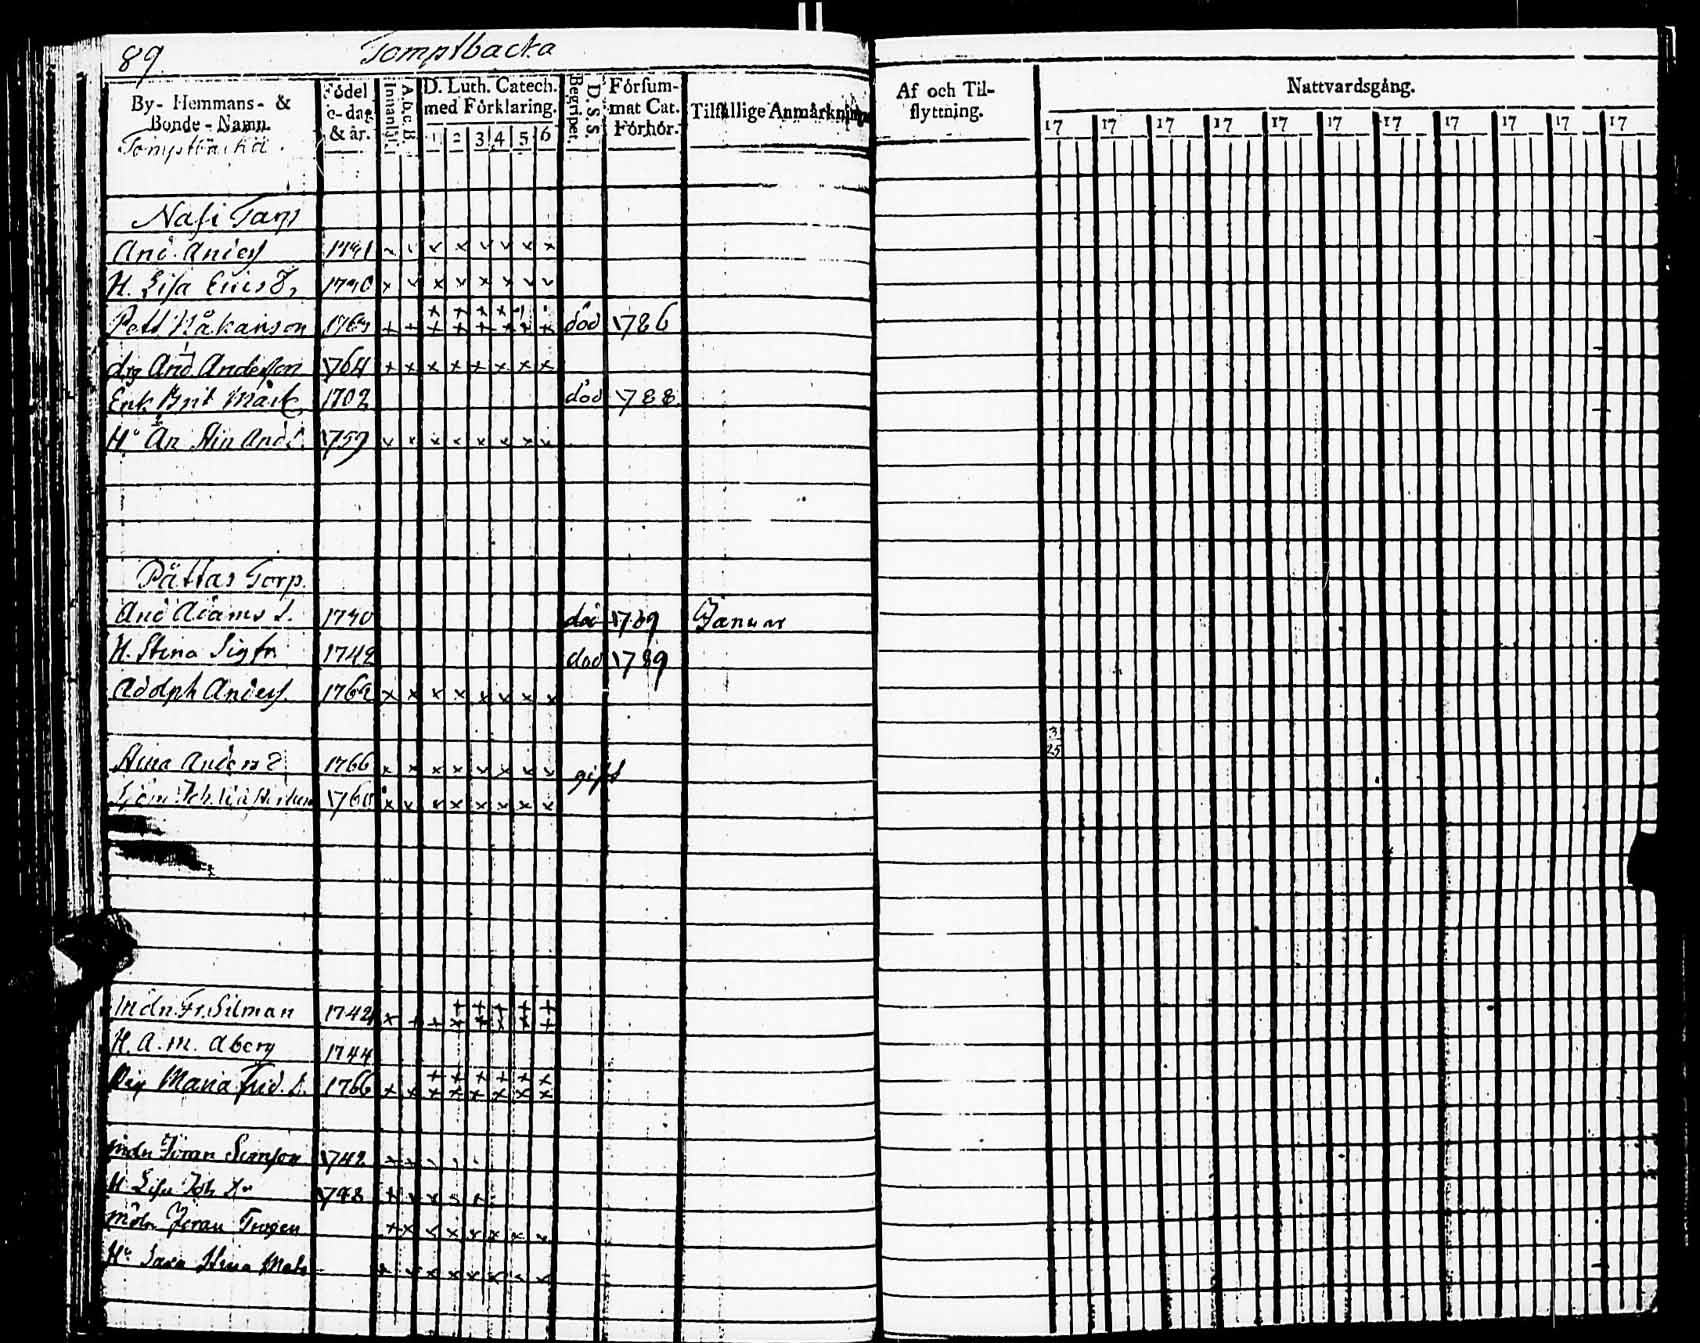 89. Tomptbacka
By- Hemmans- & Bonde-Namn.
Tomptbacka.
Födelse-dag & år.
Innantil.
A. b. c. B.
D. Luth. Catech. med Förklaring.
1 2 3 4 5 6
D. S. S. Begripet.
Försummat Cat. Förhör.
Tilfällige Anmärkning
Af och Til-flyttning.
Nattvardsgång.
17 17 17 17 17 17 17 17 17 17 17
Torp
And. Anders 1741 x v v x v v x x
H. Lisa Erics D. 1740 x v x v x x v v
x x x x
Pett Håkanson x x x x x x x x död 1786
drg And Andersson 1764 x x x x x x x x
Enk. Brit 1702 död 1788.
H. An Stin And 1759 v x x x x x x x
Påttas Torp.
And Adams S. 1740 död 1789 Januar
H. Stina Sigfr 1742 död 1789
Adolph Anders. 176 x x x x x x x x
3
25
Stina Anders D. 1766 x x x x x x x x gift
Joh. 1760 x x x x x x x x
+ + + + +
Mdn. Fr. Silman 1742 x + + x x x x +
H. A. M. Åberg 1744
+ + + + + x
Pig Maria Frid. D. 1766 x x x x x x x x
mdn Jöran Simson 1742 x x
H Lisa Joh D. x x x
Mdn Jöran Trogen x x x x x x x x
H. Sara Stina Mats x x x x x x x x